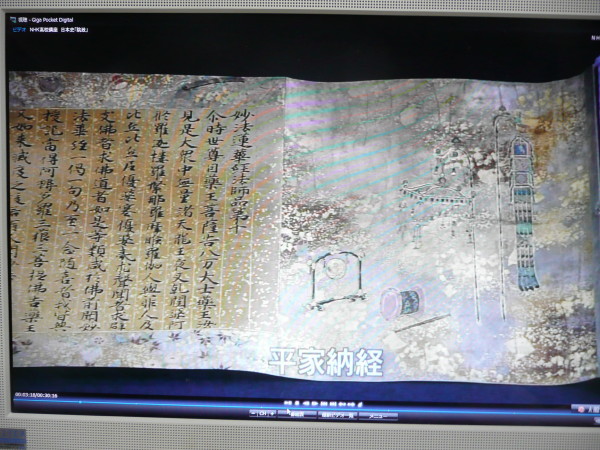 視聴 - Giga Pocket Digital
ビデオ NHK高校講座 日本史「院政」
妙法蓮華経法師品第十
尒時世尊因薬王菩薩告八万大士薬王汝
見是大衆中無量諸天龍王夜叉乾闥婆阿
修羅迦楼羅緊那羅摩睺羅伽人與非人及
比丘比丘尼優婆塞優婆夷求聲聞者求辟
支佛者求佛道者如是等類咸於佛前聞妙
法華経一偈一句乃至一念随喜者我皆與
授記當得阿耨多羅三藐三菩提佛告薬王
又如来滅度之後若有人聞
平家納経
00:03:16/00:30:16
メニュー